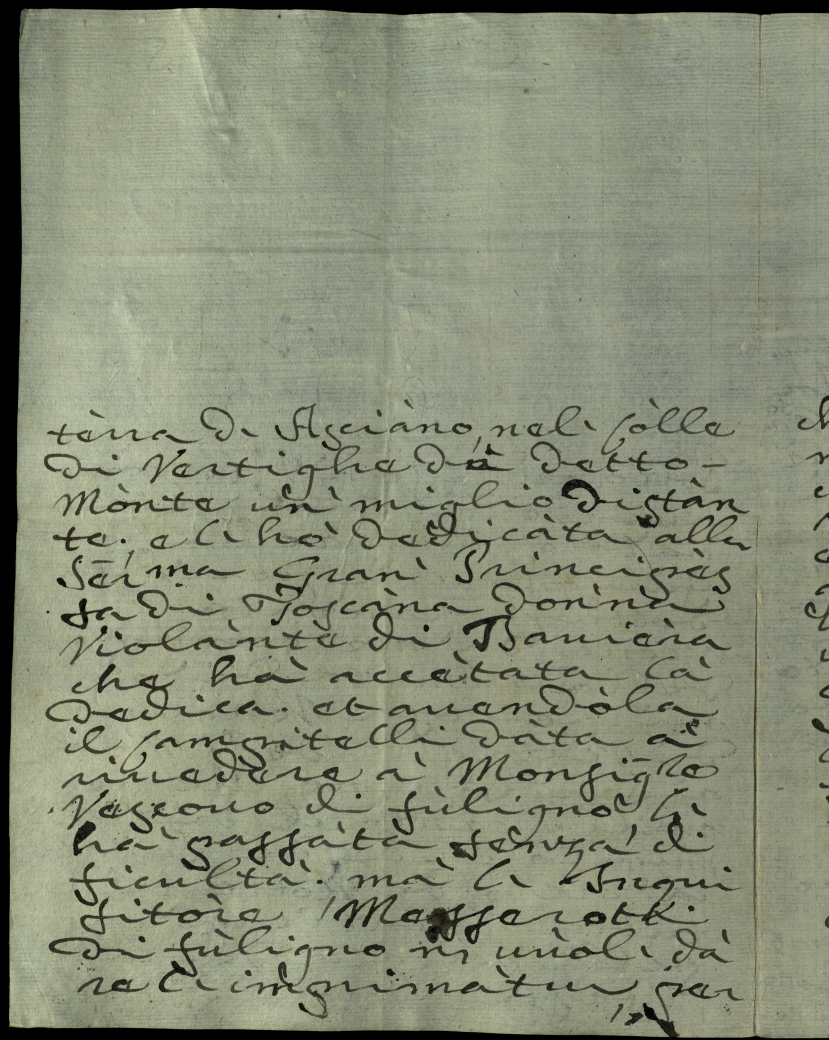 tèrra di Asciàno, nel còlle
di Vertighe dà detto-
Mònte un' miglio distàn
te. e lì hò dèdicàta alla
Ser:ma Gran' Principès
sa di Toscàna donna
Violàntè di Bauièra
che hà accètata là
Dedica. et auendòla
il Campitelli dàta à
riuedere à Monsig:re
Vescouo di fùlignò lì
hà passàta sènza di
ficultà. mà lì Inqui
sitòre Messerotti
di fùligno nò uuole dà
re lì imprimàtur per